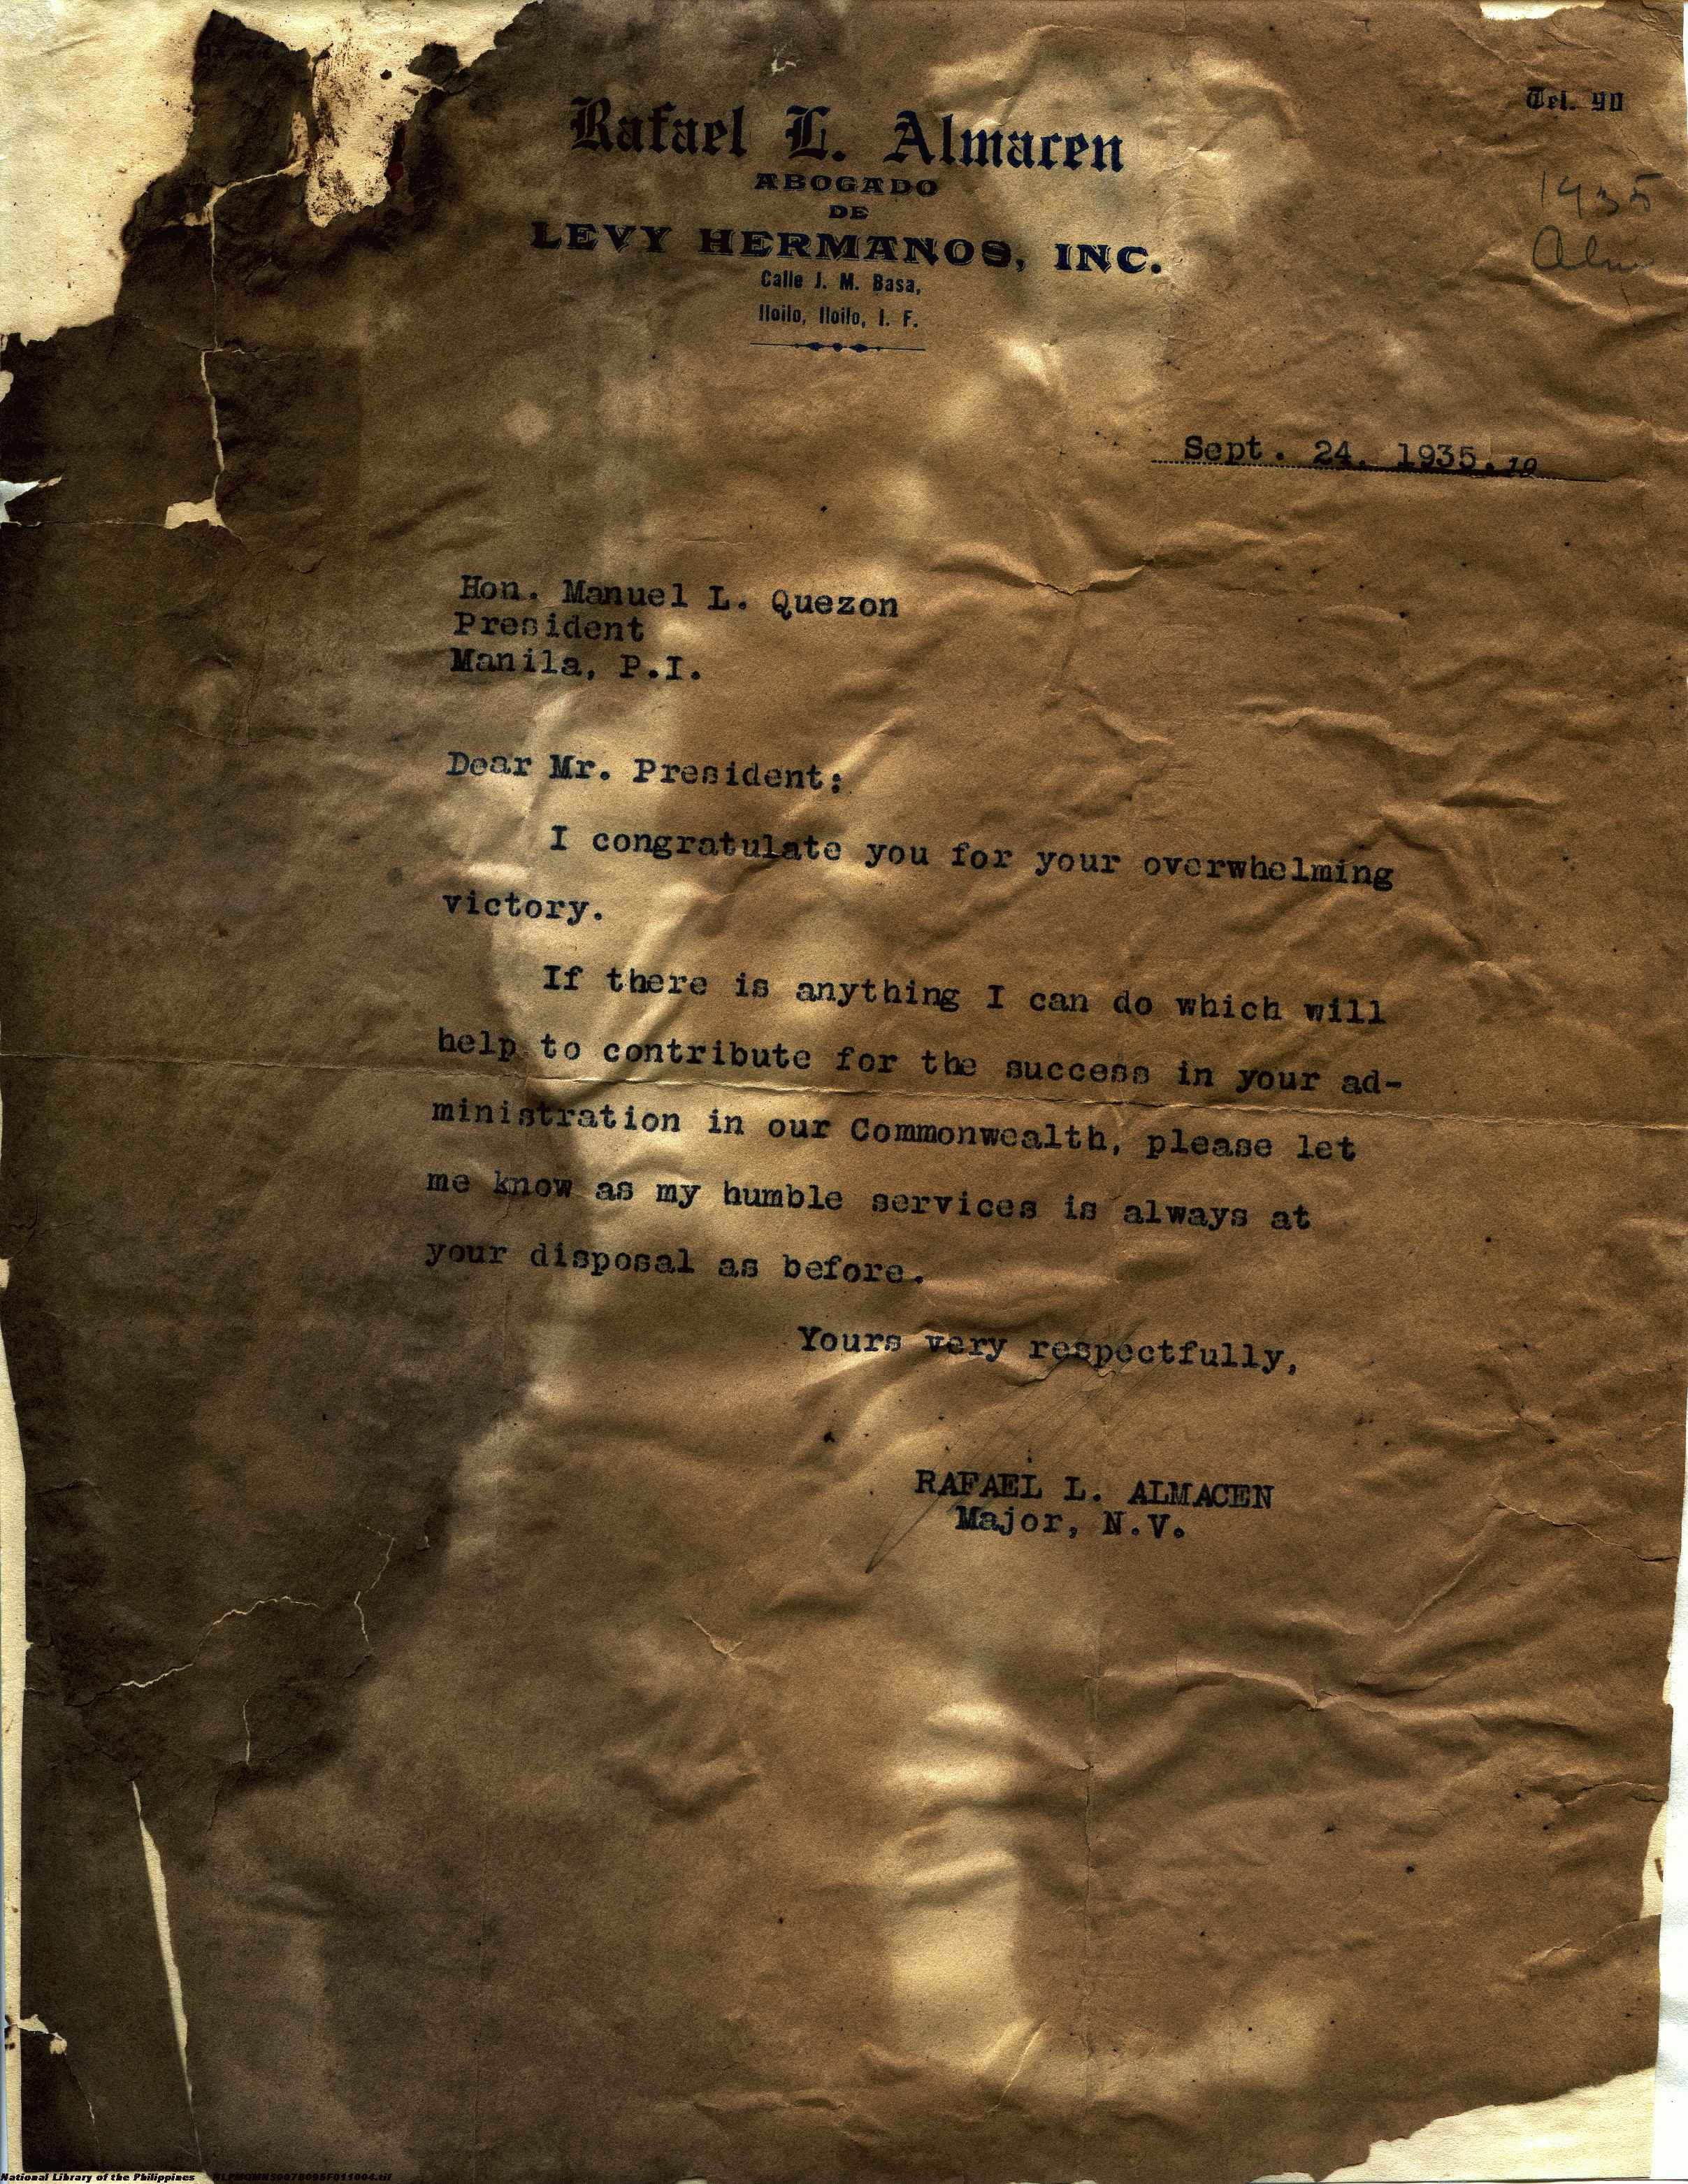 Tel. 90
Rafael L. Almacen
ABOGADO
DE
LEVY HERMANOS, INC.
Calle J. M. Basa,
Iloilo, Iloilo, I. F.
1935
Sept. 24, 1935. 19
Hon. Manuel L. Quezon
President
Manila, P.I.
Dear Mr. President:
I congratulate you for your overwhelming
victory.
If there is anything I can do which will
help to contribute for the success in your ad-
ministration in our Commonwealth, please let
me know as my humble services is always at
your disposal as before.
Yours very respectfully,
RAFAEL L. ALMACEN
Major, N.V.
National Library of the Philippines